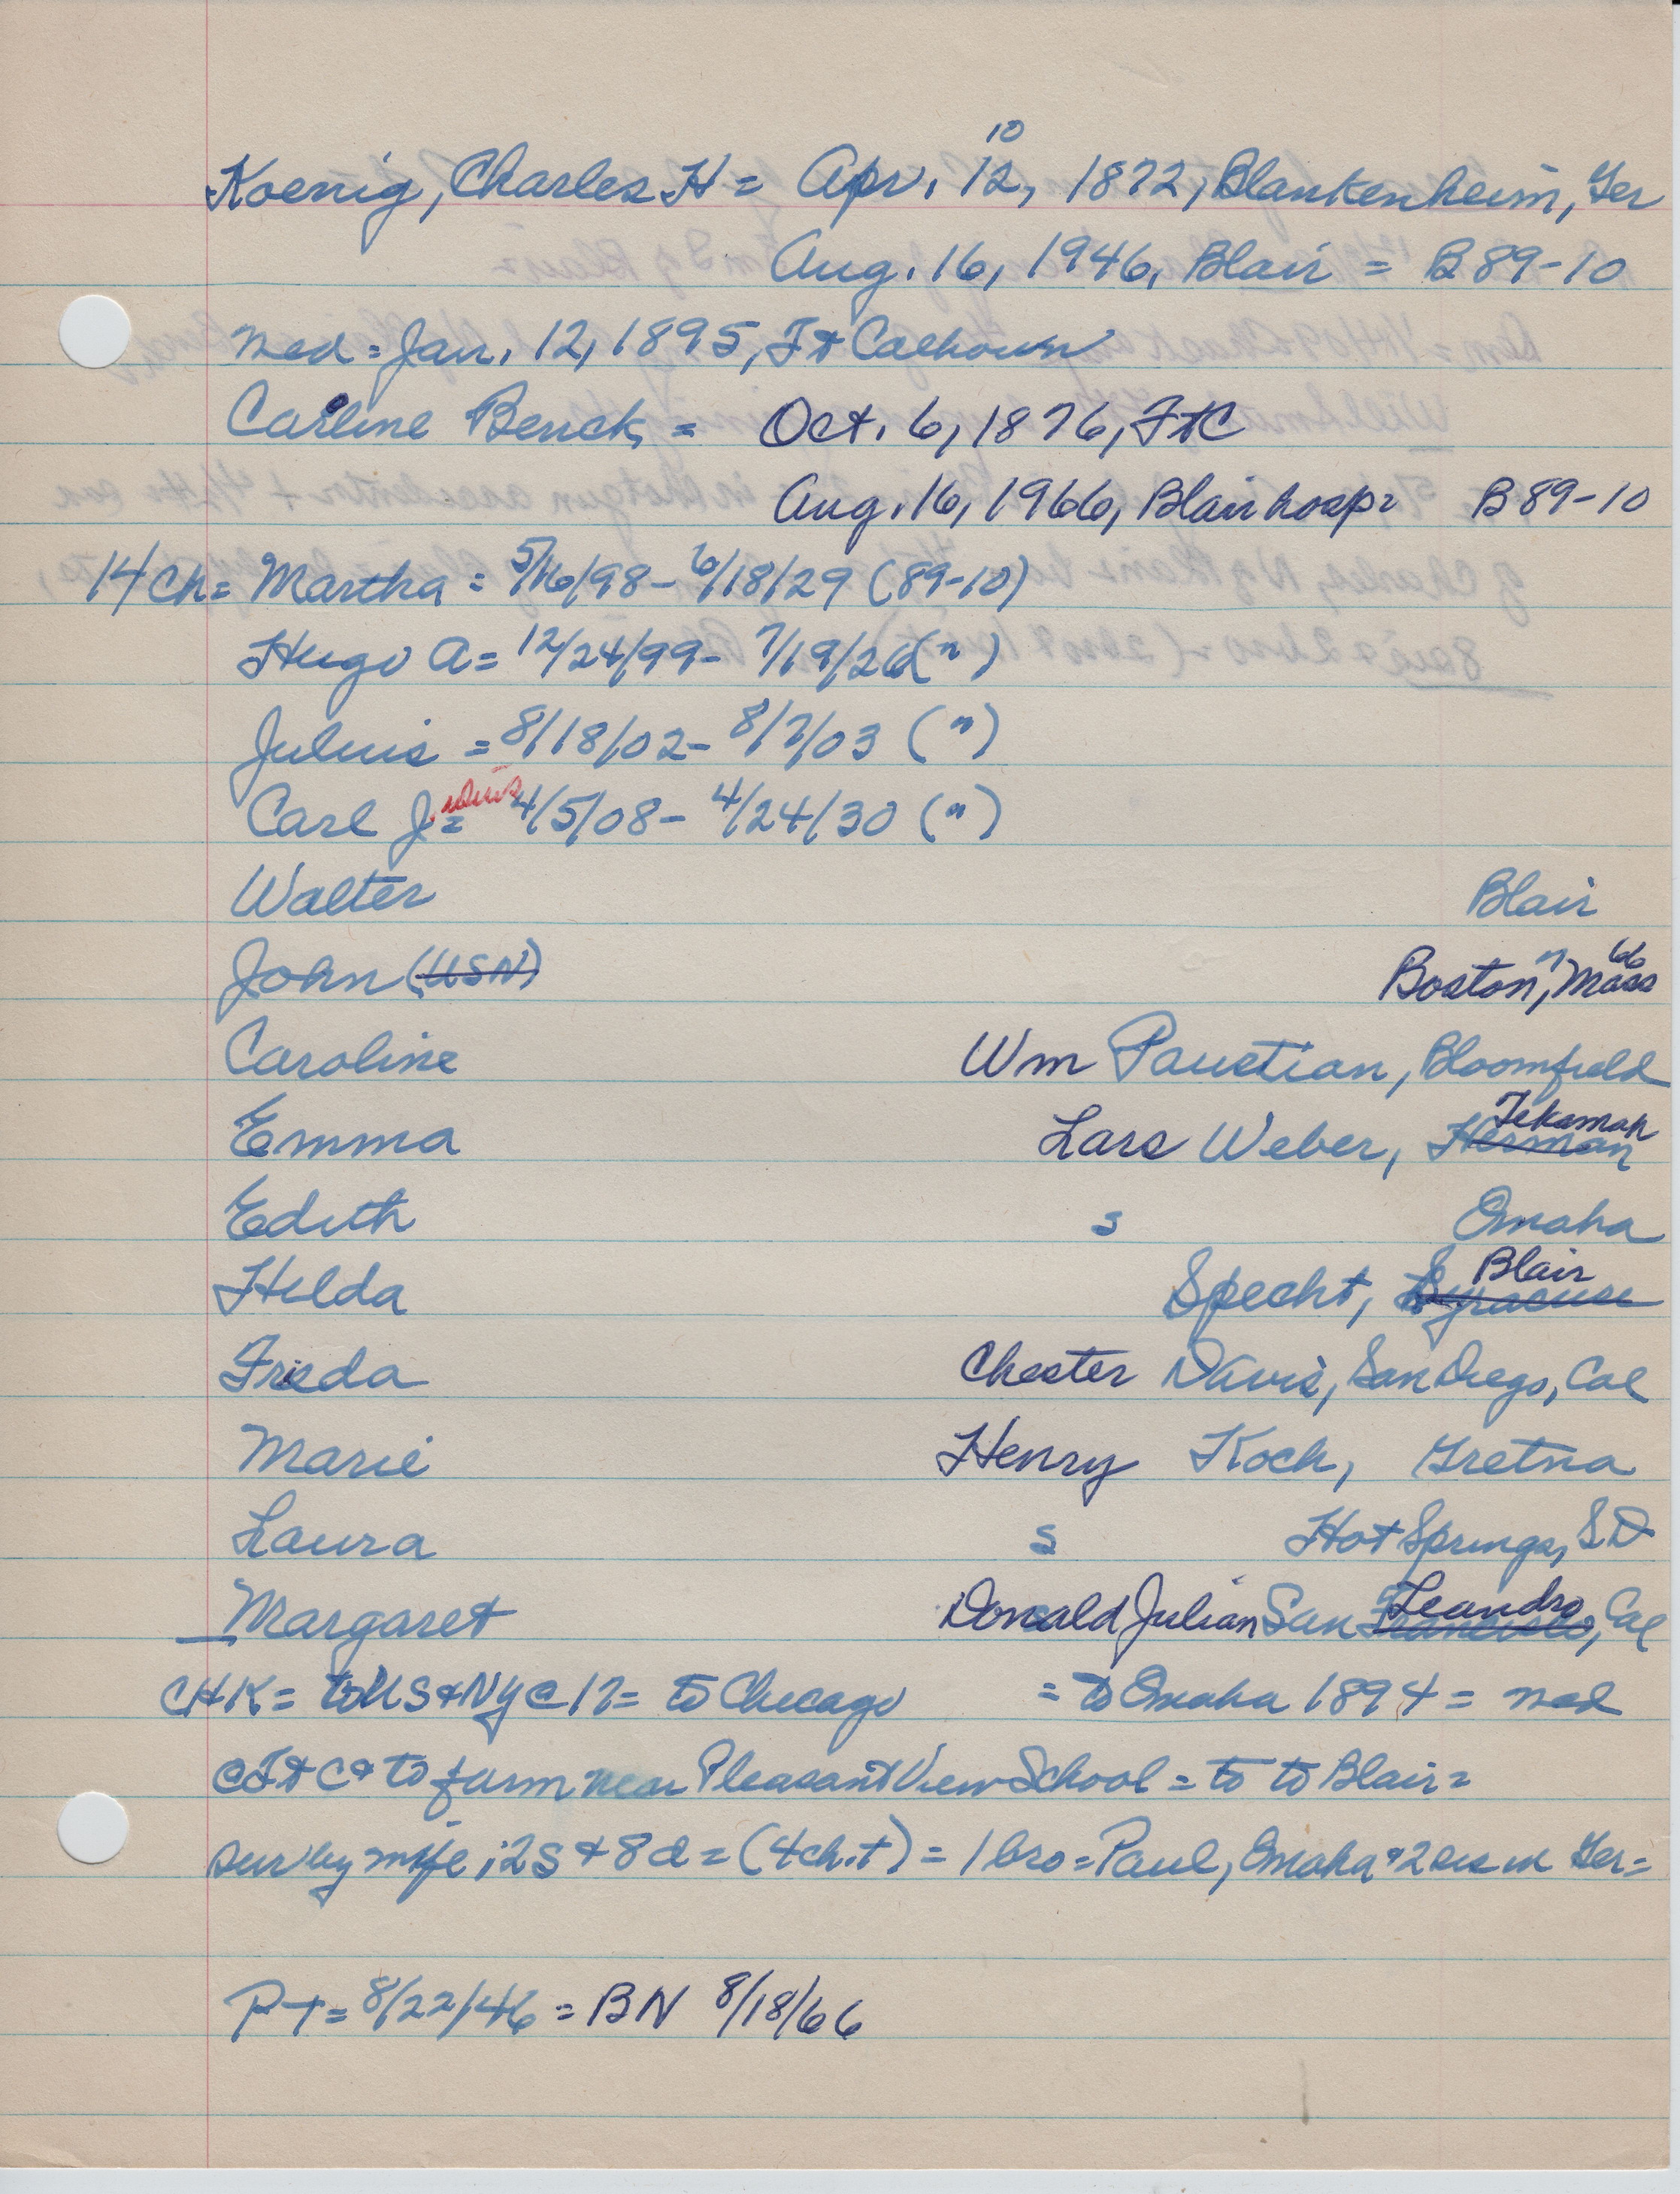 10
Koenig, Charles H = Apr. 12, 1872, Blankenheim, Ger
Aug. 16, 1946, Blair = B 89-10
med = Jan. 12, 1895, Ft Calhoun
Carline Benck = Oct. 6, 1876, FtC
Aug. 16, 1966, Blair hosp = B 89-10
14 ch = Martha = 5/16/98 - 6/18/29 (89-10)
Hugo A = 12/24/99 - 7/19/26 (")
Julius = 8/18/02 - 8/7/03 (")
Carl Julius = 4/5/08 - 4/24/30 (")
Walter Blair
John (USN) Boston, Mass " 66
Caroline Wm Paustian, Bloomfield
Emma Lars Weber, Herman Tekamah
Edith s Omaha
Hilda Specht, Syracuse Blair
Frieda Chester Davis, San Diego, Cal
Marie Henry Koch, Gretna
Laura s Hot Springs, S.D
Margaret Donald Julian San Francisco Leandro, Cal
CHK = to US & NY @ 17 = to Chicago = to Omaha 1894 = med
@ Ft C & to farm near Pleasant View School = to to Blair =
sur by wife; 2s & 8d = (4ch.t) = 1 bro = Paul, Omaha & 2 sis in Ger =
PT = 8/22/46 = BN 8/18/66